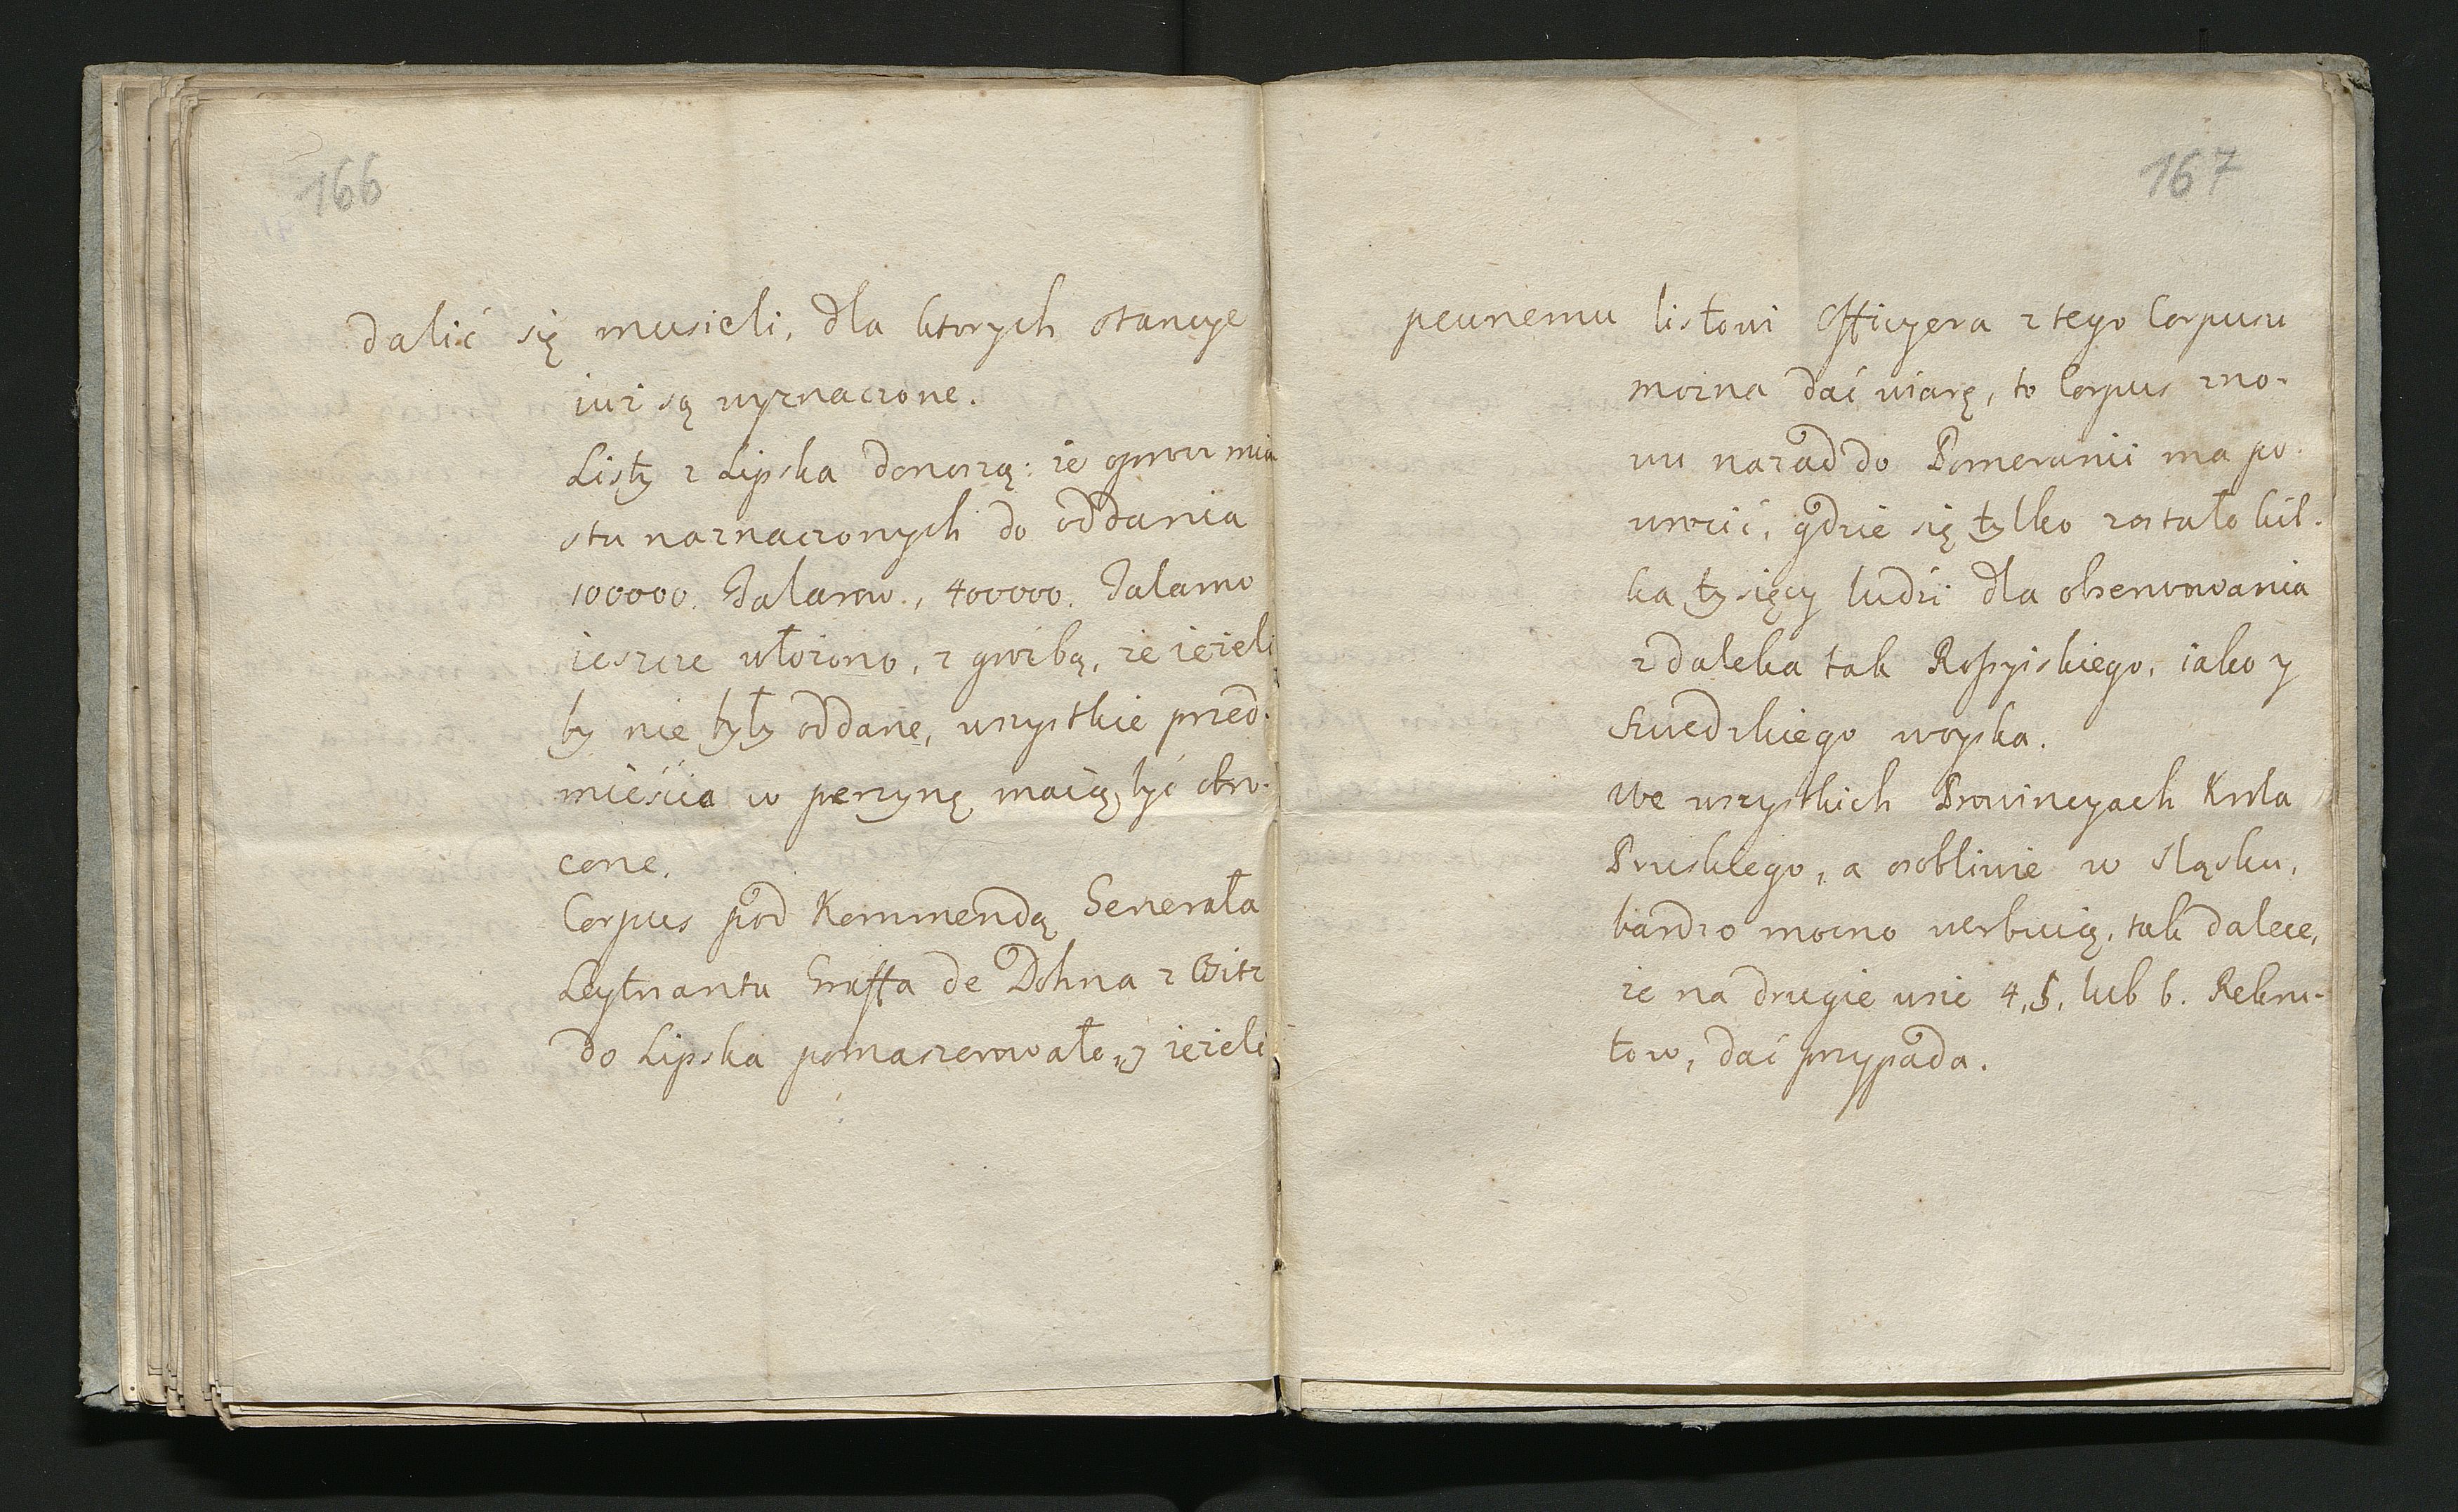 166
dalić się musieli, dla ktorych stancye
iuz są wyznaczone.
Listy z Lipska donoszą: ze oprocz mia
stu naznaczonych do oddania
100000. Talarow., 400000. Talarow
ieszcze włożono, z groźbą, ze iezeli
by nie były oddane, wszystkie przed-
mieścia w perzynę maią być obro-
cone.
Corpus pod Kommendą Generała
Leytnanta Graffa de Dohna z
do Lipska pomaszerowało, y iezeli
167
pewnemu listowi Officyera z tego Corpusu
mozna dać wiarę, to Corpus zno-
wu nazad do Pomeranii ma po-
wrocić, gdzie się tylko zostało kil-
ka tysięcy ludzi dla obserwowania
z daleka tak Rossyiskiego, iako y
Szwedzkiego woyska.
We wszystkich Prowincyach Krola
Pruskiego, a osobliwie w Sląsku,
bardzo mocno werbuią, tak dalece,
ze na drugie wsie 4, 5, lub 6. Rekru-
tow, dać przypada.